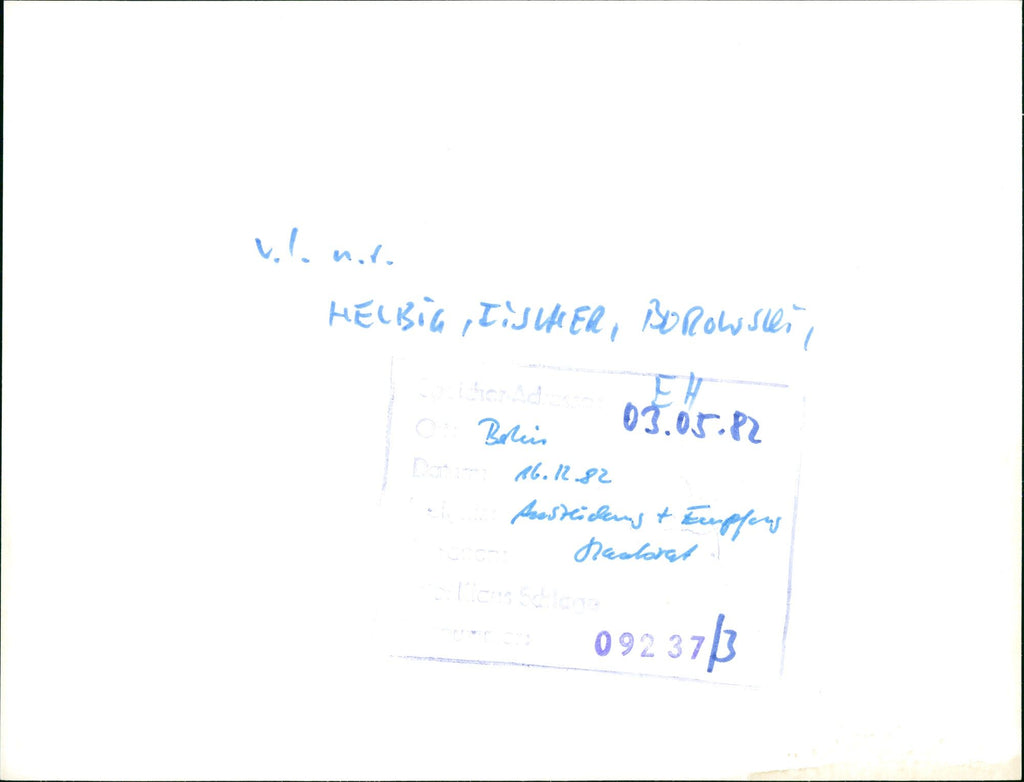 v.l. n.r.
HELBIG, FISCHER, BOROWSKI,
EH
Speicher-Adresse: 03.05.82
Ort: Berlin
Datum: 16.12.82
Ereignis: Auszeichnung + Empfang
Staatsrat
Personen:
Foto: Klaus Schlage
09237/3